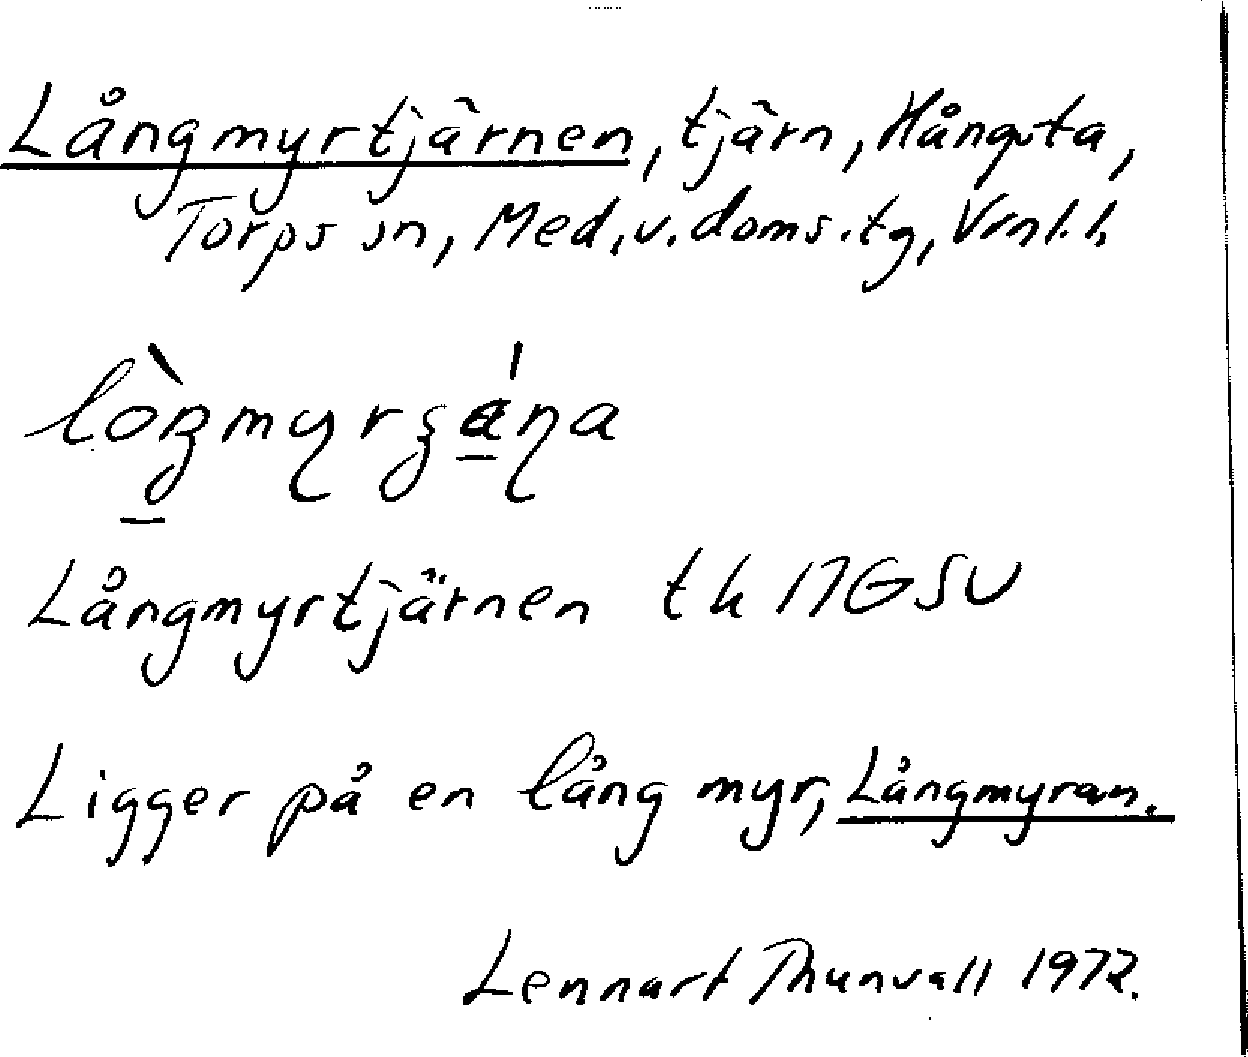 Långmyrtjärnen, tjärn, Hångsta,
Torps sn, Med.v.doms.tg, Vrnl.l.
Långmyrtjärnen tk 17G SV
Ligger på en lång myr, Långmyran.
Lennart Thunvall 1972.